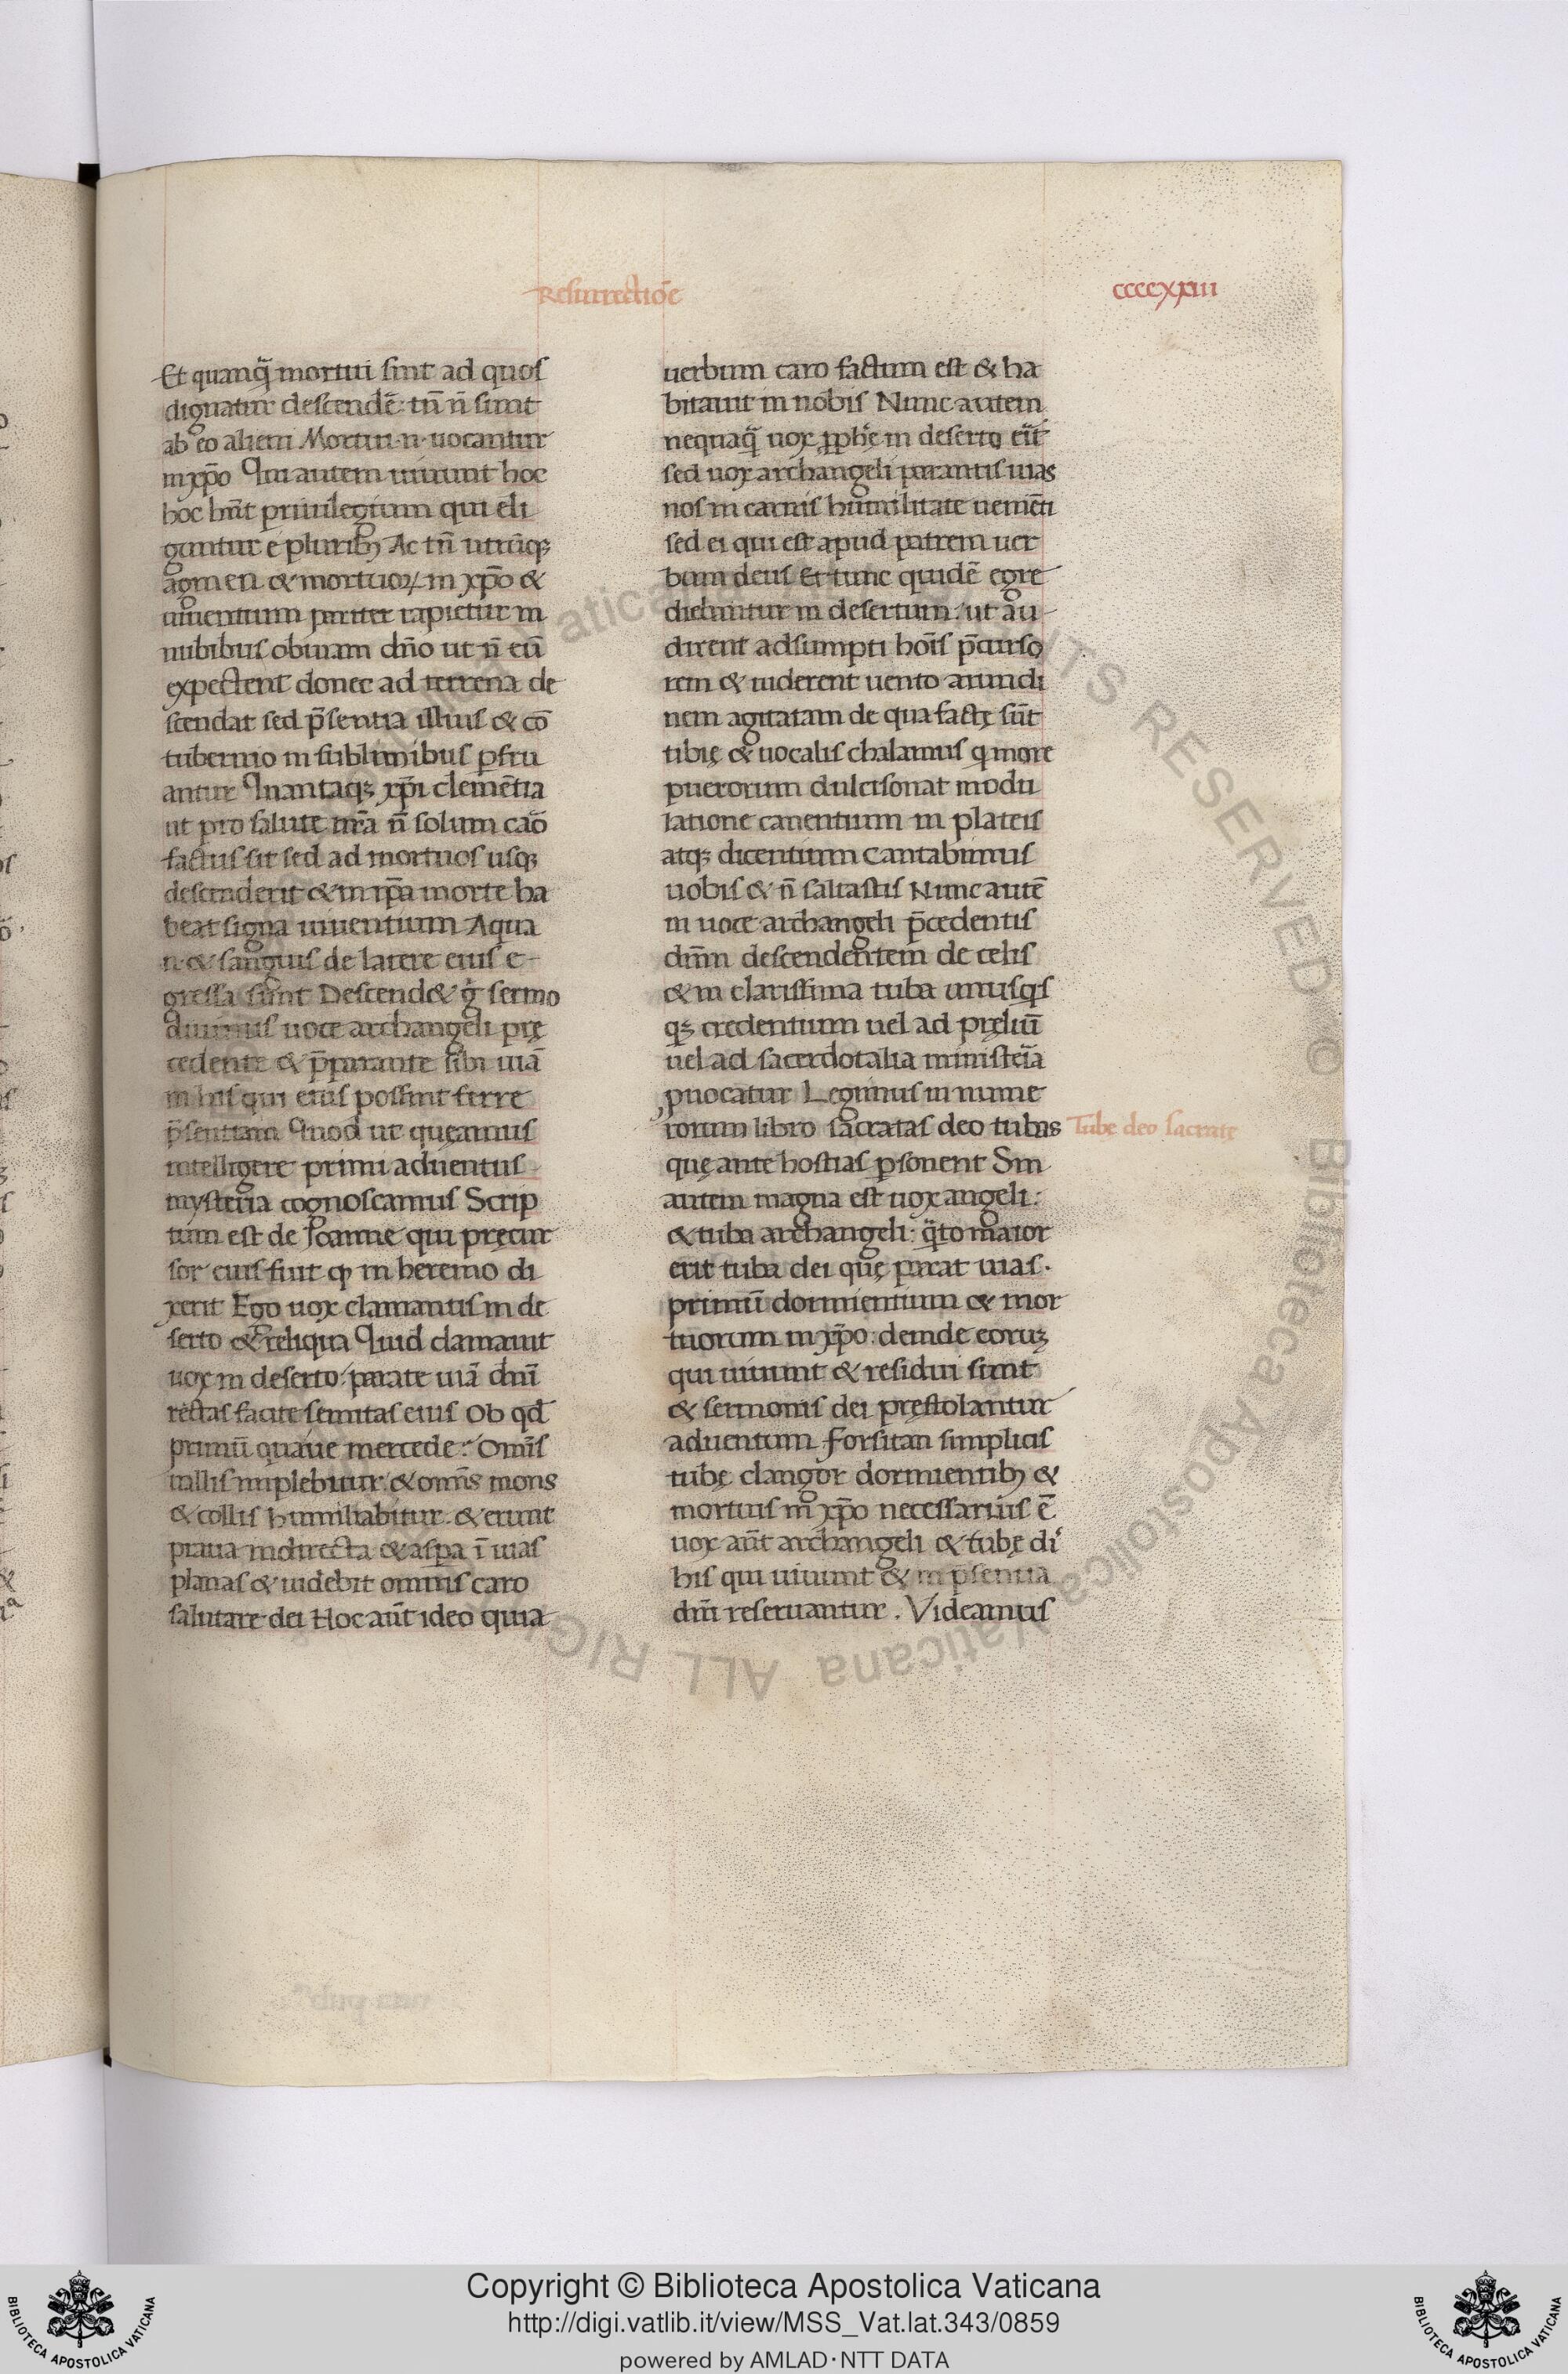 Resurrectiōe
ccccxxiii
Et quanq̄ mortui sint ad quos
dignatur descendē: tn̄ n̄ sunt
ab eo alieni Mortui .n. uocantur
in xp̄o Qui autem uiuunt hoc
hoc hn̄t priuilegium qui eli
guntur e pluribꝫ Ac tn̄ utrūqꝫ
agmen & mortuoꝝ in xp̄o &
uiuentium pariter rapietur in
nubibus obuiam dn̄o ut n̄ eū
expectent donec ad terrena de
scendat sed p̄sentia illius & cō
tubernio in sublimibus ꝑfru
antur Quantaqꝫ xp̄i clemētia
ut pro salute nr̄a n̄ solum cāo
factus sit sed ad mortuos usqꝫ
descenderit & in ip̄a morte ha
beat signa uiuentium Aqua
.n. & sanguis de latere eius e-
gressa sunt Descend& g̊ sermo
diuinus uoce archangeli prę
cedente & p̄parante sibi uiā
in his qui eius possint ferre
p̄sentiam Quod ut queamus
intelligere primi aduentus
mysteria cognoscamus Scrip
tum est de Ioanne qui pręcur
sor eius fuit ꝙ in heremo di
xerit Ego uox clamantis in de
serto & reliqua Quid clamauit
uox in deserto: parate uiā dn̄i
rectas facite semitas eius Ob qd̄
primū quaue mercede: Omn̄s
uallis implebitur & omn̄s mons
& collis humiliabitur. & erunt
praua in directa & asꝑa ī uias
planas & uidebit omnis caro
salutare dei Hoc aūt ideo quia
uerbum caro factum est & ha
bitauit in nobis Nunc autem
nequaq̄ uox ꝓphę in deserto erit
sed uox archangeli parantis uias
nos in carnis humilitate ueniēti
sed ei qui est apud patrem uer
bum deus Et tunc quidē egre
diebantur in desertum: ut au-
dirent adsumpti hoīs p̄curso
rem & uiderent uento arundi
nem agitatam de qua factę sūt
tibię & uocalis chalamus q more
puerorum dulcisonat modu
latione canentium in plateis
atqꝫ dicentium Cantabimus
uobis & n̄ saltastis Nunc autē
in uoce archangeli p̄cedentis
dn̄m descendentem de celis
& in clarissima tuba unusqs
qꝫ credentium uel ad pręliū
uel ad sacerdotalia ministeia
ꝓuocatur Legimus in nume
rorum libro sacratas deo tubas
Tubę deo sacratę
quę ante hostias ꝑsonent Sin
autem magna est uox angeli:
& tuba archangeli: q̄to maior
erit tuba dei quę parat uias.
primū dormientium & mor
tuorum in xp̄o: deinde eoruꝫ
qui uiuunt & residui sunt
& sermonis dei pręstolantur
aduentum Forsitan simplicis
tubę clangor dormientibꝫ &
mortuis in xp̄o necessarius ē
uox aūt archangeli & tubę di
his qui uiuunt & in p̄sentia
dn̄i reseruantur. Videamus
Copyright © Biblioteca Apostolica Vaticana
http://digi.vatlib.it/view/MSS_Vat.lat.343/0859
powered by AMLAD·NTT DATA